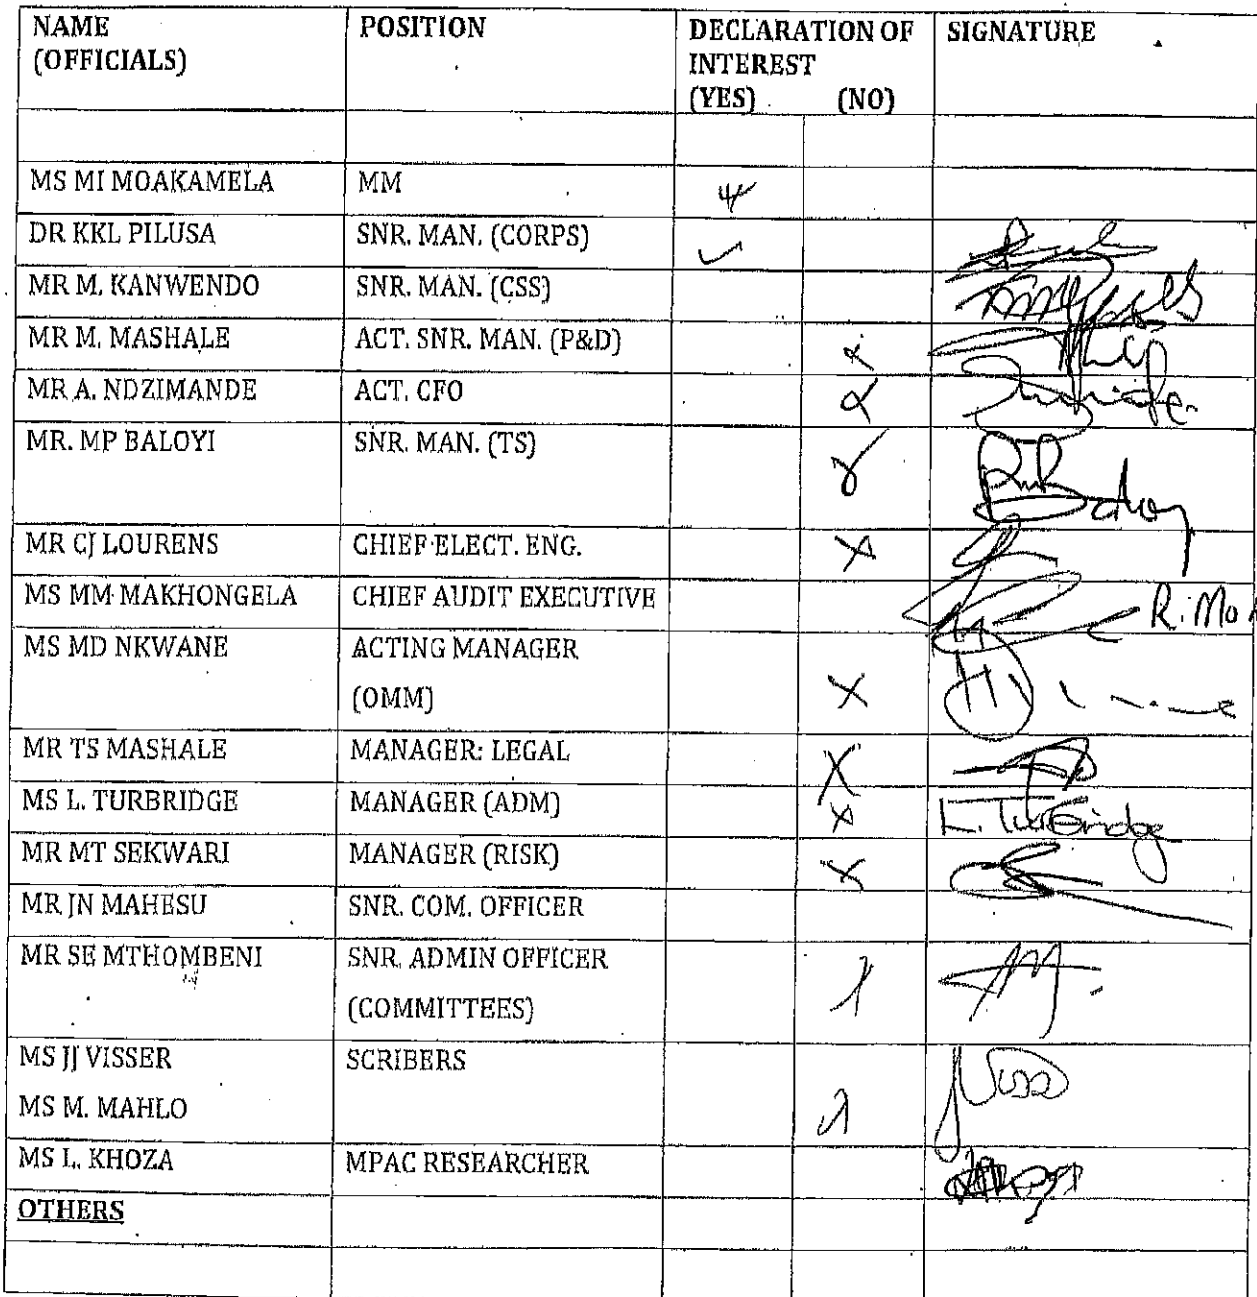 NAME POSITION DECLARATION OF SIGNATURE
(OFFICIALS) INTEREST
(YES) (NO)
MS MI MOAKAMELA MM
DR KKL PILUSA SNR. MAN. (CORPS)
MR M. KANWENDO SNR. MAN. (CSS)
MR M. MASHALE ACT. SNR. MAN. (P&D)
MR A. NDZIMANDE ACT. CFO
MR. MP BALOYI SNR. MAN. (TS)
MR CJ LOURENS CHIEF ELECT. ENG.
MS MM MAKHONGELA CHIEF AUDIT EXECUTIVE
MS MD NKWANE ACTING MANAGER
(OMM)
MR TS MASHALE MANAGER: LEGAL
MS L. TURBRIDGE MANAGER (ADM) L. Turbridge
MR MT SEKWARI MANAGER (RISK)
MR JN MAHESU SNR. COM. OFFICER
MR SE MTHOMBENI SNR. ADMIN OFFICER
(COMMITTEES)
MS JJ VISSER SCRIBERS
MS M. MAHLO
MS L. KHOZA MPAC RESEARCHER
OTHERS